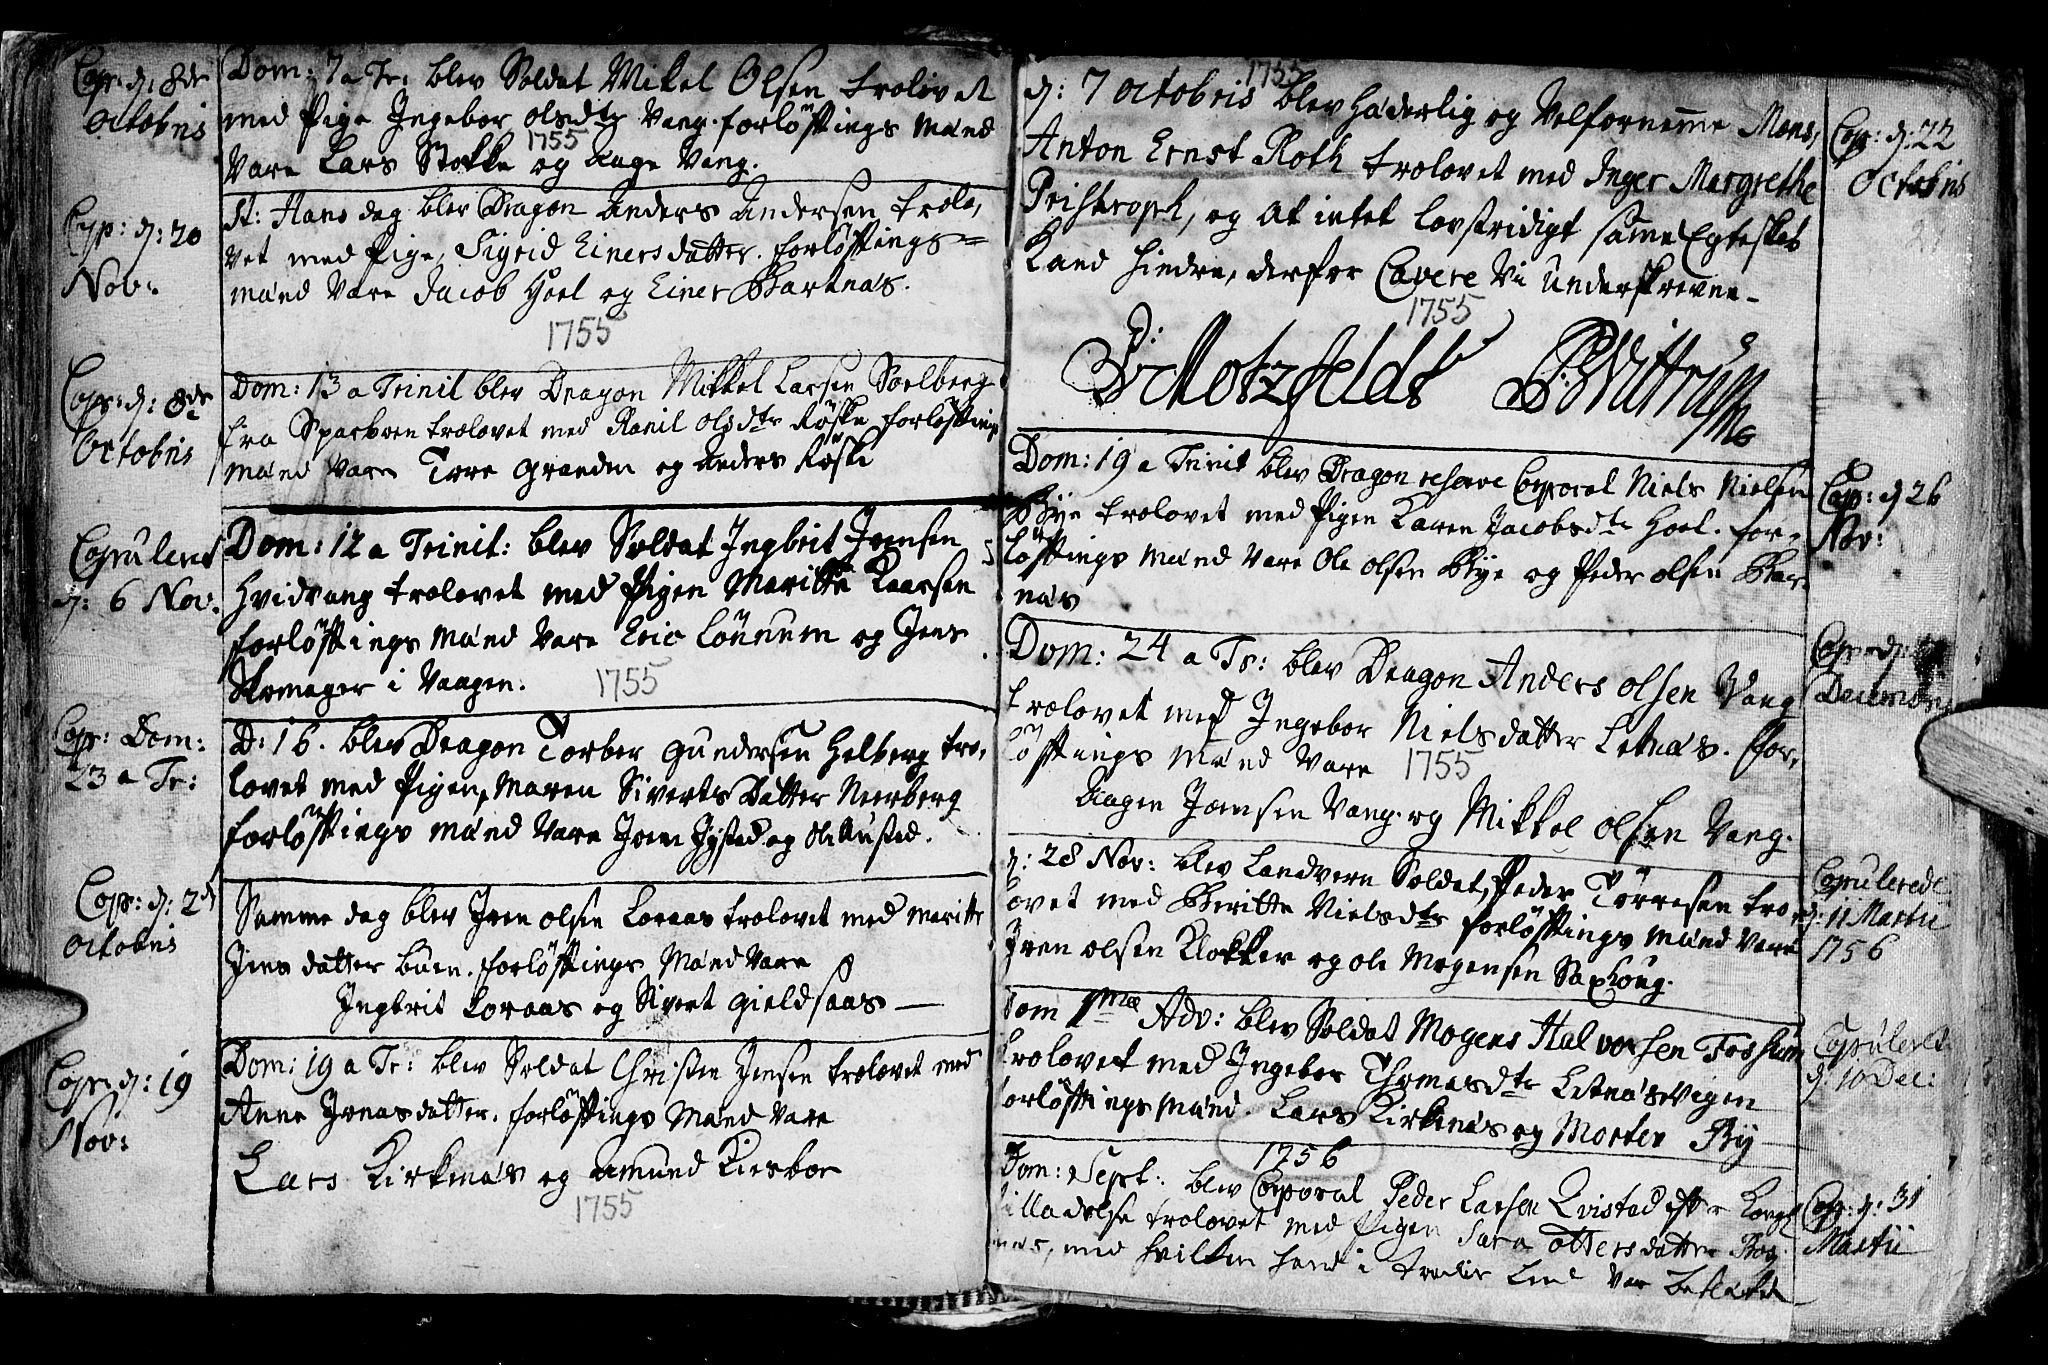 Cop: d: 8de
Octobris
Dom: 7 a Tr: blev Soldat Mikel Olsen trolovet
med Pige Ingebor Olsdtr Vang. forløftings Mænd
1755
vare Lars Stokke og Aage Vang.
Cop: d: 20
Nov:
St: Hans dag blev Dragon Anders Andersen trolo,
vet med Pige, Sigrid Einersdatter. forløftings=
mænd vare Jacob Hoel og Einer Bartnæs.
1755
Cop: d: 8de
Octobris
Dom: 13 a Trinit blev Dragon Mikkel Larsen Soelberg
fra Sparboen trolovet med Ranil Olsdtr Røske forløftings
mænd vare Tore Granden og Anders Røske
Copulent
d: 6 Nov.
Dom: 12 a Trinit: blev Soldat Ingbrit Joensen
Hvidvang trolovet med Pigen Maritte Roarsen
forløftings mænd vare Eric Lønnum og Jens
Skomager i Vaagen.
1755
Cop: Dom:
23 a Tr:
D: 16. blev Dragon Torber Gundersen Helberg tro,
lovet med Pigen, Maren Siverts Datter Neerberg
forløftings mænd vare Joen Jÿsted og Ole Austed.
Cop: d: 2d
Octobris
Samme dag blev Joen Olsen Loraas trolovet med Maritte
Jens datter buen. forløftings Mænd vare
Ingbrit Loraas og Sivert Gieldsaas —
Cop: d: 19
Nov:
Dom: 19 a Tr: blev Soldat Christen Jensen trolovet med
Anne Jonasdatter. forløftings Mænd vare
Lars Kirknæs og Amund Kiesboe
1755
1755
d: 7 Octobris blev Hæderlig og Velfornemme Mons,
Anton Ernst Roth trolovet med Inger Margrethe
Pristroph, og at intet lovstridigt samme Egteskab
kand hindre, derfor Cavere Vi underskrevne -
1755
Motzfeldt Wittrup
Cop: d: 22
Octobris
Dom: 19 a Trinit blev Dragon reserve Corporal Niels Nielsen
Bÿe trolovet med Pigen Karen Jacobsdtr Hoel. for,
løftings mænd vare Ole Olsen Bÿe og Peder Olsen Bar
næs
Cop: d 26
Nov:
Dom: 24 a Tr: blev Dragon Anders Olsen Vang
trolovet med Ingebor Nielsdatter Letnæs. for,
løftings Mænd vare 1755
Aagen Joensen Vang. og Mikkel Olsen Vang.
Cop: d:
Decembr
d: 28 Nov: blev Landvern Soldat, Peder Tørresen tro
lovet med Beritte Nielsdtr forløftings mænd vare
Joen Olsen Klokker og Ole Mogensen Saxhoug.
Copulerede
d: 11 Martii
1756
Dom 1mæ Adv: blev Soldat Mogens Halvorsen Tosshem
trolovet med Ingebor Thomasdtr Letnæsvigen
forløftings mænd. Lars Kirknæs og Morten By
Copulent
d: 10 Dec:
1756
Dom: Sept: blev Corporal Peder Larsen Qvistad efter Kongl
tilladelse trolovet med Pigen Sara Ottersdatter Rog
næs, med hvilken hand i tredie Leed var beslægtet
Cop: d: 31
Martii